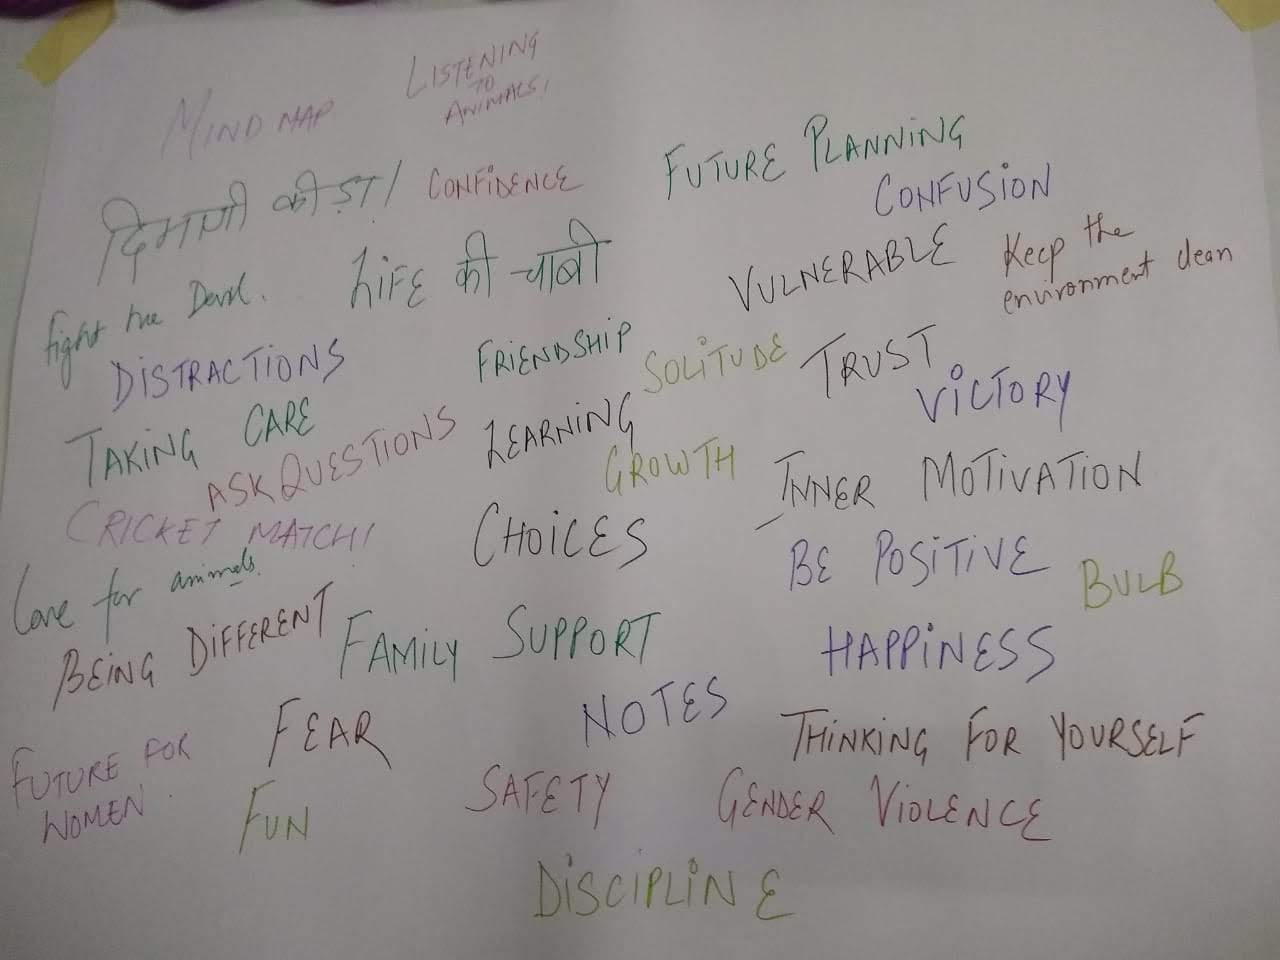 LISTENING
TO
ANIMALS!
MIND MAP
FUTURE PLANNING
दिमागी कीड़ा!
CONFIDENCE
CONFUSION
LIFE की चाबी
VULNERABLE
Keep the
environment clean
fight the Devil.
DISTRACTIONS
FRIENDSHIP
SOLITUDE
TRUST
VICTORY
TAKING CARE
LEARNING
ASK QUESTIONS
GROWTH
INNER MOTIVATION
CRICKET MATCH!
CHOICES
BE POSITIVE
BULB
Love for animals.
BEING DIFFERENT
FAMILY SUPPORT
HAPPINESS
NOTES
FEAR
THINKING FOR YOURSELF
FUTURE FOR
WOMEN.
FUN
SAFETY
GENDER VIOLENCE
DISCIPLINE